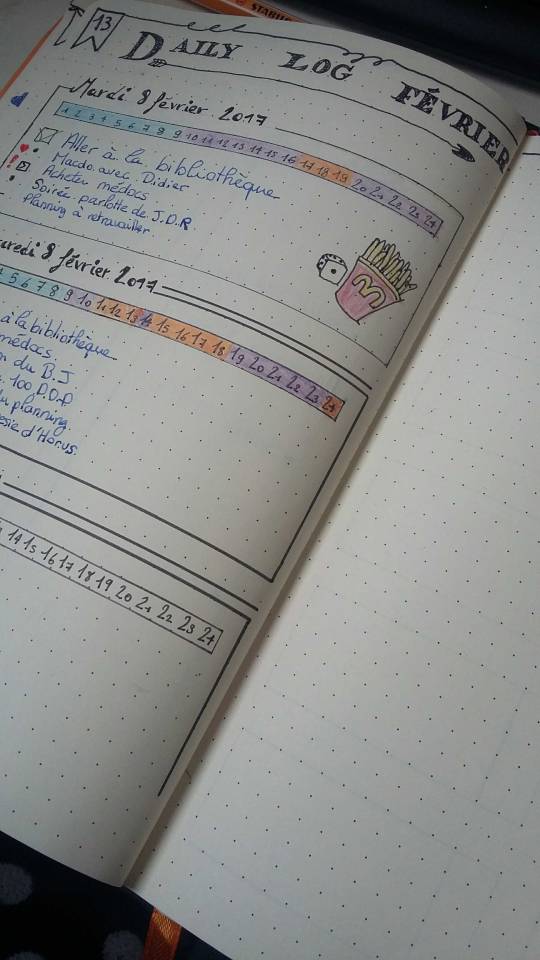 STABILO
13
DAILY LOG FÉVRIER
Mardi 8 février 2017
1 2 3 4 5 6 7 8 9 10 11 12 13 14 15 16 17 18 19 20 21 22 23 24
Aller à la bibliothèque
Macdo avec Didier
Acheter médocs
! Soirée parlotte de J.D.R.
Planning à retravailler
M
credi 8 février 2017
5 6 7 8 9 10 11 12 13 14 15 16 17 18 19 20 21 22 23 24
à la bibliothèque
médocs
du B.J
100 D.O.P
planning
d'Horus
14 15 16 17 18 19 20 21 22 23 24